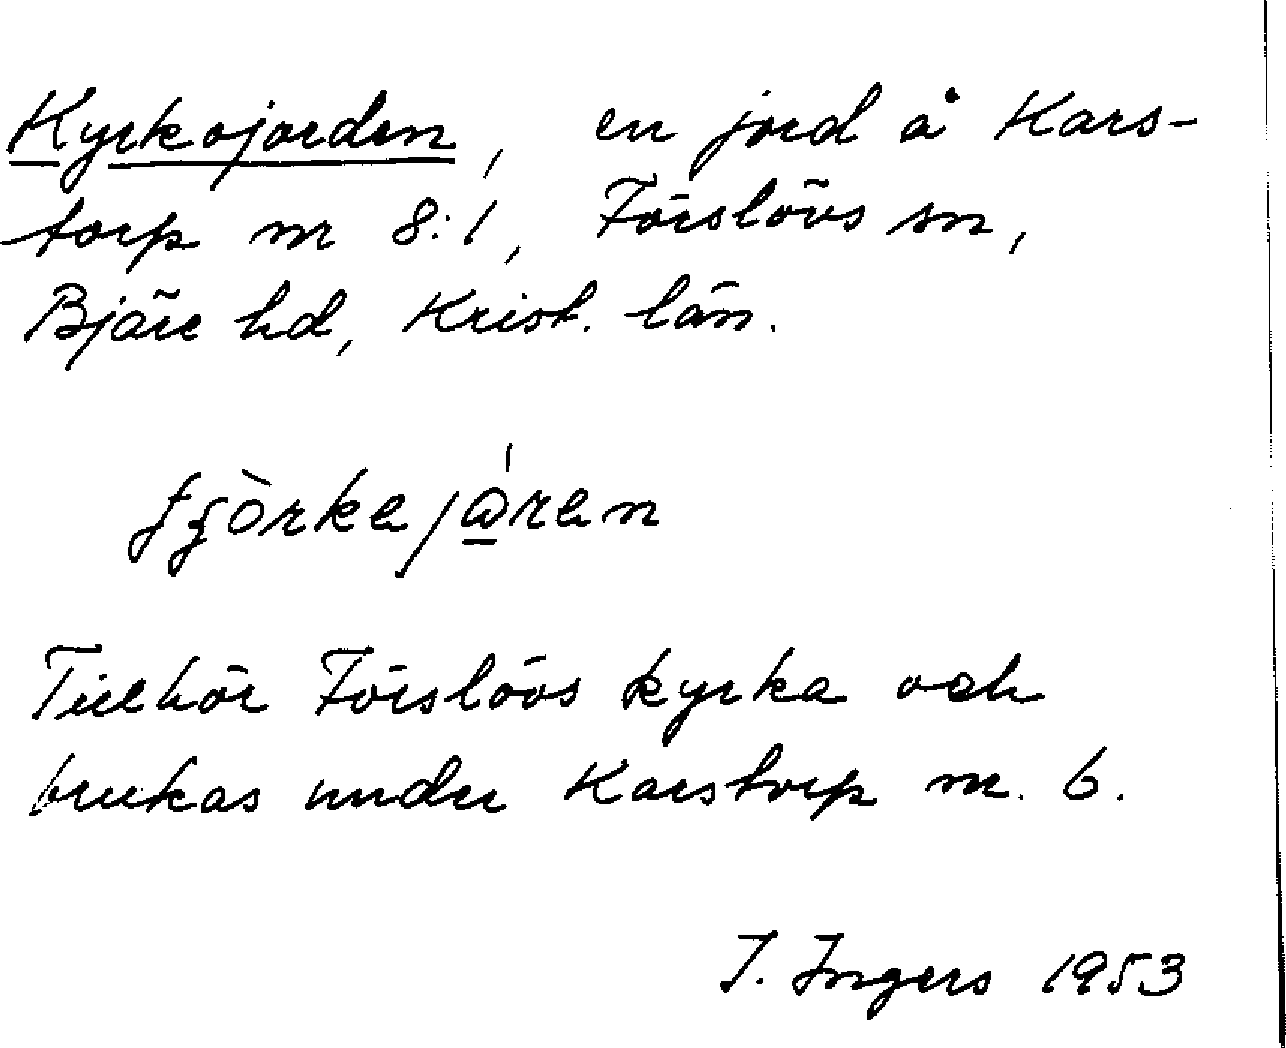 Kyrkojorden, en jord å Kars-
torp nr 8:1, Förslövs sn,
Bjäre hd, Krist. län.
Tillhör Förslövs kyrka och
brukas under Karstorp nr. 6.
I. Ingers 1953